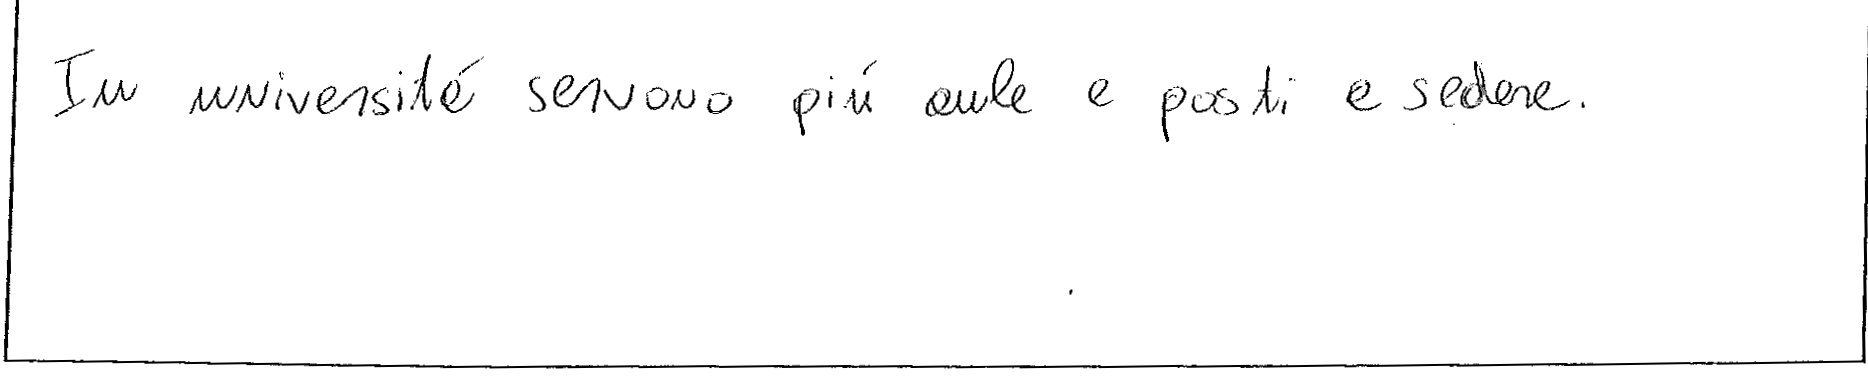 In università servono più aule e posti a sedere.